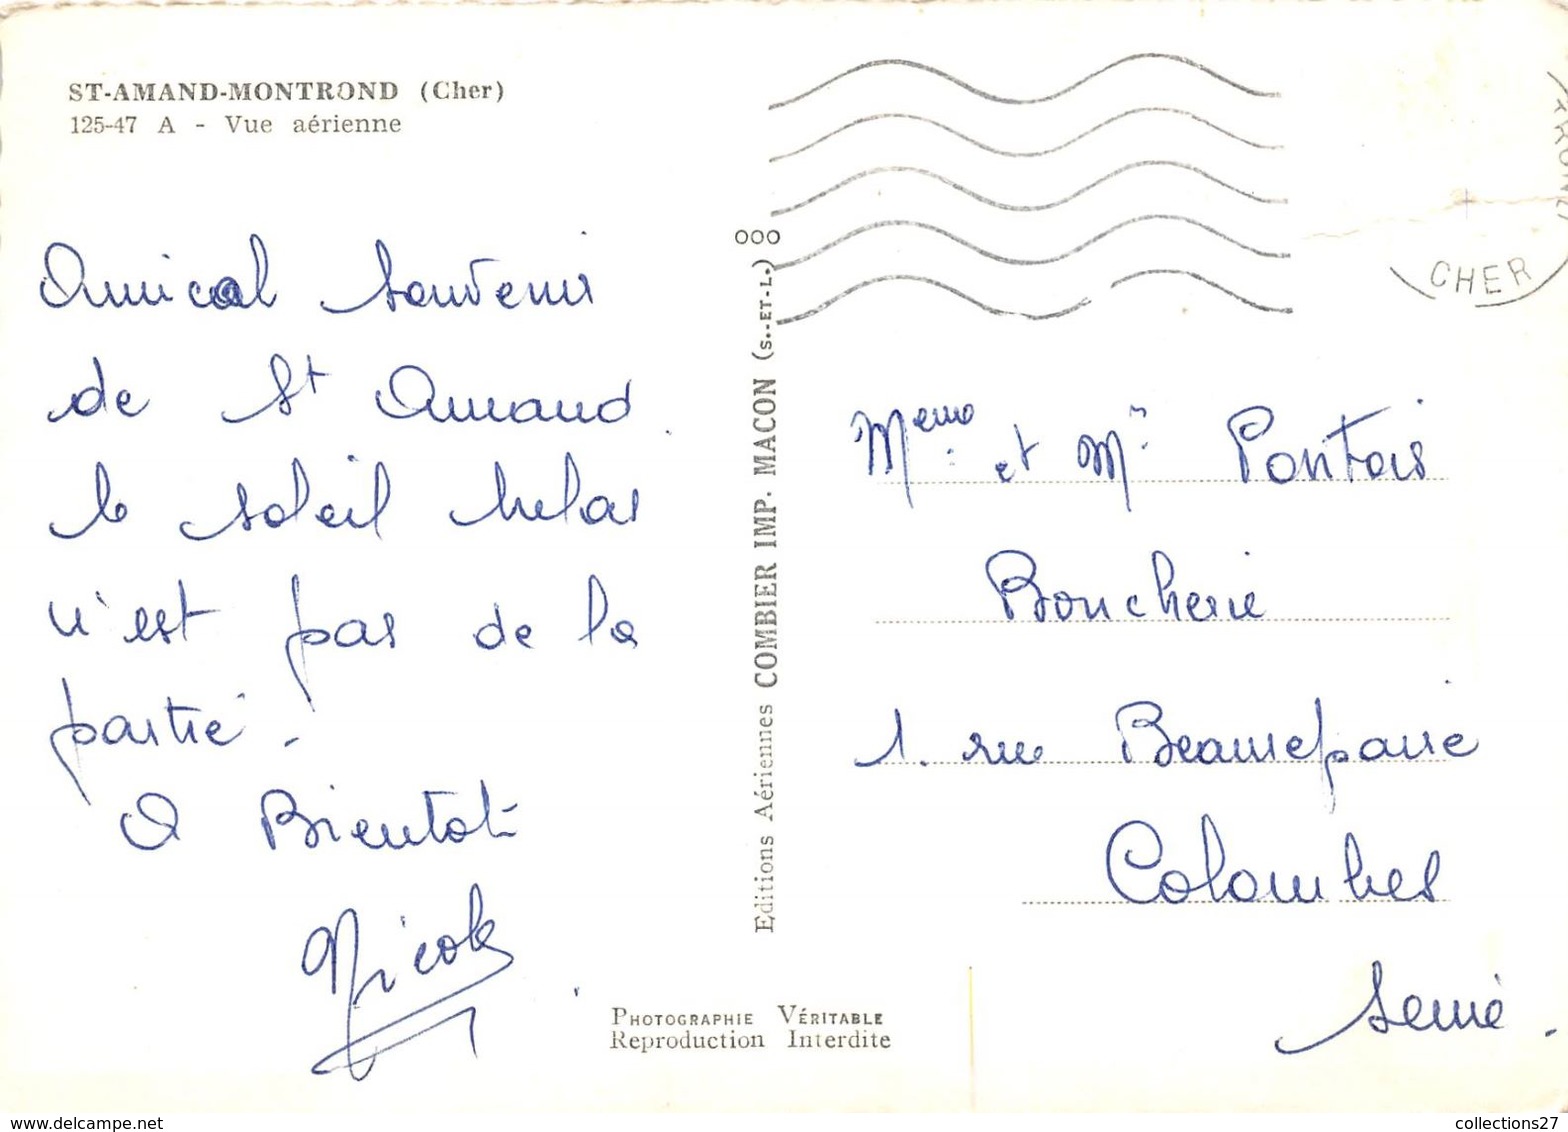 ST-AMAND-MONTROND (Cher)
125-47 A - Vue aérienne
Amical souvenir
de St Amand
le soleil helas
n'est pas de la
partie.
A Bientot
Nicole
Editions Aériennes COMBIER IMP. MACON (S.-ET-L.) 000
CHER
Meme et Mr Pontois
Boucherie
1. rue Beaurepaire
Colombes
Seine.
PHOTOGRAPHIE VÉRITABLE
Reproduction Interdite
collections27